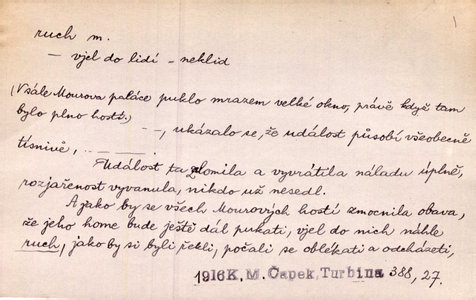 1
ruch m.
— vjel do lidí – neklid
(V sále Mourova paláce puklo mrazem velké okno, právě když tam
bylo plno hostí.) — —, ukázalo se, že událost působí všeobecně
tísnivě, — . — . — . — .
Událost ta zlomila a vyvrátila náladu úplně,
rozjařenost vyvanula, nikdo už nesedl.
A jako by se všech Mourových hostí zmocnila obava,
že jeho home bude ještě dál pukati, vjel do nich náhle
ruch, jako by si byli řekli, počali se oblékati a odcházeti,
1916 K. M. Čapek, Turbina 388, 27.